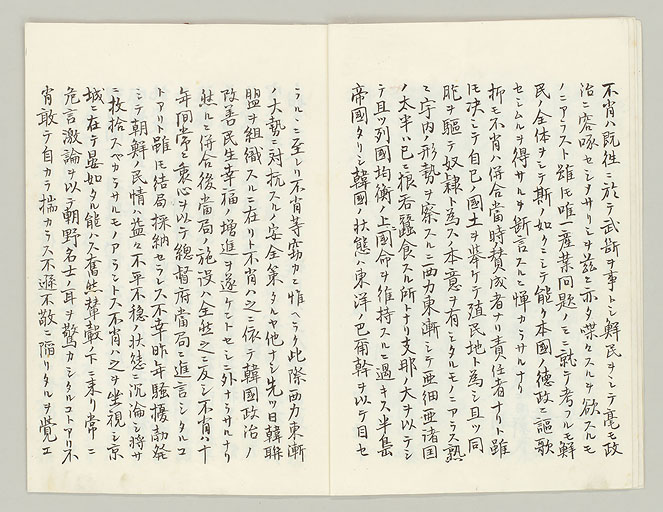 不肖ハ既徃ニ於テ武断ヲ事トシ鮮民ヲシテ毫モ政
治ニ容喙セシメサリシヲ茲ニ亦タ喋々スルヲ欲スルモ
ノニアラスト雖モ唯一産業問題ノミニ就テ考フルモ鮮
民ノ全体ヲシテ斯ノ如クニシテ能ク本國ノ德政ニ謳歌
セシムルヲ得サルヲ断言スルニ憚カラサルナリ
抑モ不肖ハ併合當時賛成者ナリ責任者ナリト雖
モ決シテ自己ノ國土ヲ挙ケテ殖民地ト為シ且ツ同
胞ヲ驅テ奴隷ト為スノ本意ヲ有シタルモノニアラス熟
々宇内ノ形勢ヲ察スルニ西力東漸シテ亜細亜諸国
ノ太半ハ已ニ狼呑蚕食スル所トナリ支耶ノ大ヲ以テシ
テ且ツ列國均衡上國命ヲ維持スルニ過キス半島
帝國タリシ韓國ノ状態ハ東洋ノ巴爾幹ヲ以テ目セ
ラルヽニ至レリ不肖等窃カニ惟ヘラク此際西力東漸
ノ大勢ニ対抗スルノ安全策タルヤ他ナシ先ツ日韓聯
盟ヲ組織スルニ在リト不肖ハ之ニ依テ韓國政治ノ
改善民生幸福ノ増進ヲ遂ケントセシニ外ナラサルナリ
然ルニ併合後當局ノ施設ハ全然之ニ反シ不肖ハ十
年間常ニ衷心ヲ以テ總督府當局ニ進言シタルコ
トアリト雖モ結局採納セラレス不幸昨年騒擾勃発
シテ朝鮮ノ民情ハ益々不平不穏ノ状態ニ沉淪シ将サ
ニ收拾スヘカラサルモノアラントス不肖ハ之ヲ坐視シ京
城ニ在テ晏如タル能ハス奮然輦轂ノ下ニ来リ常ニ
危言激論ヲ以テ朝野名士ノ耳ヲ驚カシタルコトアリ不
肖敢テ自カラ揣カラス不遜不敬ニ陥リタルヲ覚エ